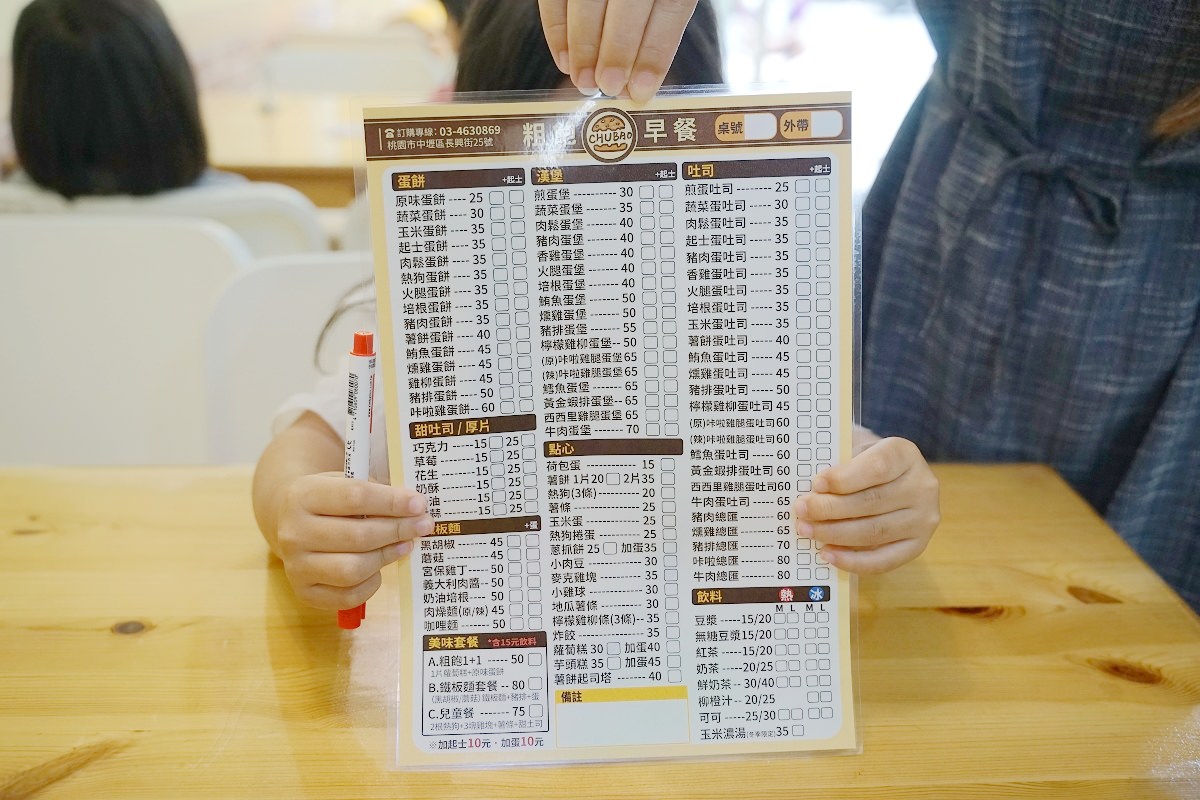 訂購專線: 03-4630869
桃園市中壢區長興街25號
粗飽
CHUBAO
早餐
桌號
外帶
蛋餅 +起士
原味蛋餅 ---- 25
蔬菜蛋餅 ---- 30
玉米蛋餅 ---- 35
起士蛋餅 ---- 35
肉鬆蛋餅 ---- 35
熱狗蛋餅 ---- 35
火腿蛋餅 ---- 35
培根蛋餅 ---- 35
豬肉蛋餅 ---- 35
薯餅蛋餅 ---- 40
鮪魚蛋餅 ---- 45
燻雞蛋餅 ---- 45
雞柳蛋餅 ---- 45
豬排蛋餅 ---- 50
咔啦雞蛋餅-- 60
甜吐司 / 厚片
巧克力 ----15 25
草莓 ------15 25
花生 ------15 25
奶酥 ------15 25
油 -----15 25
-----15 25
板麵 +蛋
黑胡椒 ------- 45
蘑菇 --------- 45
宮保雞丁----- 50
義大利肉醬-- 50
奶油培根---- 50
肉燥麵(原/辣) 45
咖哩麵 ------ 50
美味套餐 *含15元飲料
A.粗飽1+1 ----- 50
1片蘿蔔糕+原味蛋餅
B.鐵板麵套餐 -- 80
(黑胡椒/蘑菇) 鐵板麵+豬排+蛋
C.兒童餐 ------- 75
2根熱狗+3塊雞塊+薯條+甜土司
※加起士10元．加蛋10元
漢堡 +起士
煎蛋堡 ---------- 30
蔬菜蛋堡 ------- 35
肉鬆蛋堡 ------- 40
豬肉蛋堡 ------- 40
香雞蛋堡 ------- 40
火腿蛋堡 ------- 40
培根蛋堡 ------- 40
鮪魚蛋堡 ------- 50
燻雞蛋堡 ------- 50
豬排蛋堡 ------- 55
檸檬雞柳蛋堡-- 50
(原)咔啦雞腿蛋堡65
(辣)咔啦雞腿蛋堡65
鱈魚蛋堡 ------- 65
黃金蝦排蛋堡-- 65
西西里雞腿蛋堡 65
牛肉蛋堡 ------- 70
點心
荷包蛋 ---------- 15
薯餅 1片20 2片35
熱狗(3條) ------- 20
薯條 ------------ 25
玉米蛋 ---------- 25
熱狗捲蛋 ------- 25
蔥抓餅 25 加蛋35
小肉豆 ---------- 30
麥克雞塊 ------- 35
小雞球 ---------- 30
地瓜薯條 ------- 30
檸檬雞柳條(3條)-- 35
炸餃 ------------ 35
蘿蔔糕 30 加蛋40
芋頭糕 35 加蛋45
薯餅起司塔 ----- 40
備註
吐司 +起士
煎蛋吐司 -------- 25
蔬菜蛋吐司 ----- 30
肉鬆蛋吐司 ----- 35
起士蛋吐司 ----- 35
豬肉蛋吐司 ----- 35
香雞蛋吐司 ----- 35
火腿蛋吐司 ----- 35
培根蛋吐司 ----- 35
玉米蛋吐司 ----- 35
薯餅蛋吐司 ----- 40
鮪魚蛋吐司 ----- 45
燻雞蛋吐司 ----- 45
豬排蛋吐司 ----- 50
檸檬雞柳蛋吐司 45
(原)咔啦雞腿蛋吐司60
(辣)咔啦雞腿蛋吐司60
鱈魚蛋吐司 ---- 60
黃金蝦排蛋吐司-60
西西里雞腿蛋吐司60
牛肉蛋吐司 ----- 65
豬肉總匯 ------- 60
燻雞總匯 ------- 65
豬排總匯 ------- 70
咔啦總匯 ------- 80
牛肉總匯 ------- 80
飲料 熱 冰
M L M L
豆漿 -----15/20
無糖豆漿15/20
紅茶 ----15/20
奶茶 ----20/25
鮮奶茶-- 30/40
柳橙汁-- 20/25
可可 ----25/30
玉米濃湯(冬季限定)35